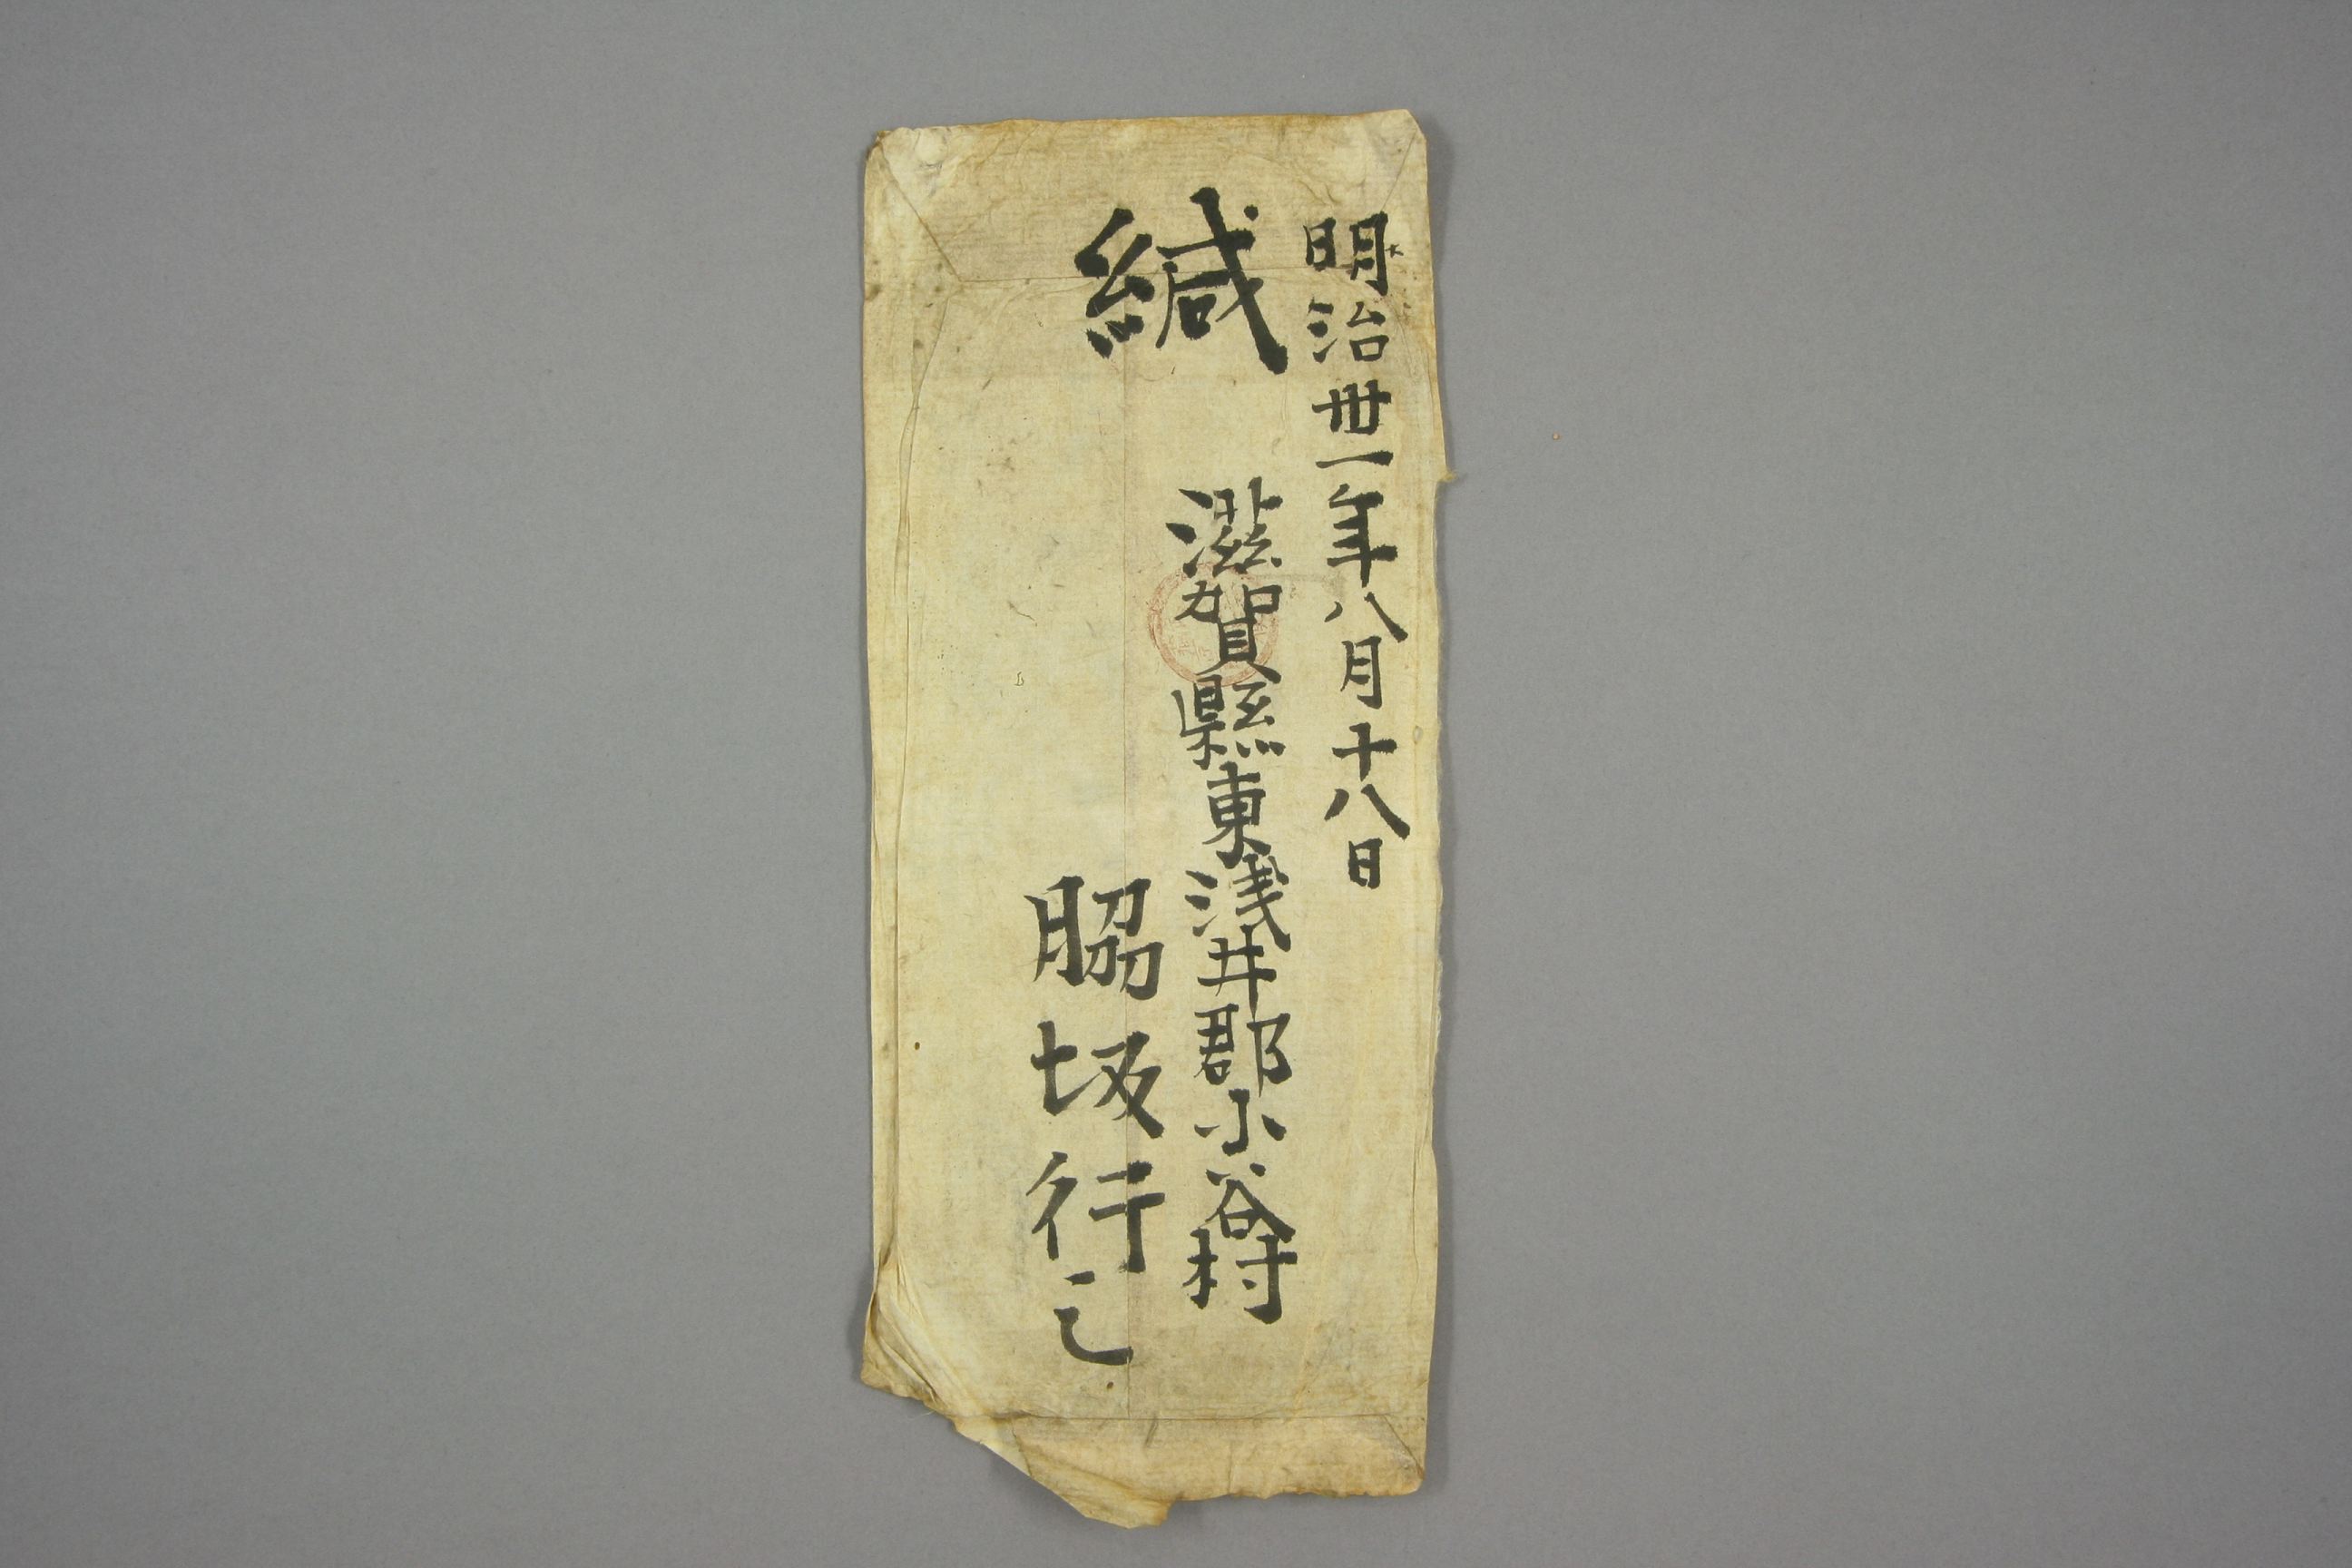 明治卅一年八月十八日
緘
滋賀縣東浅井郡小谷村
脇坂行之